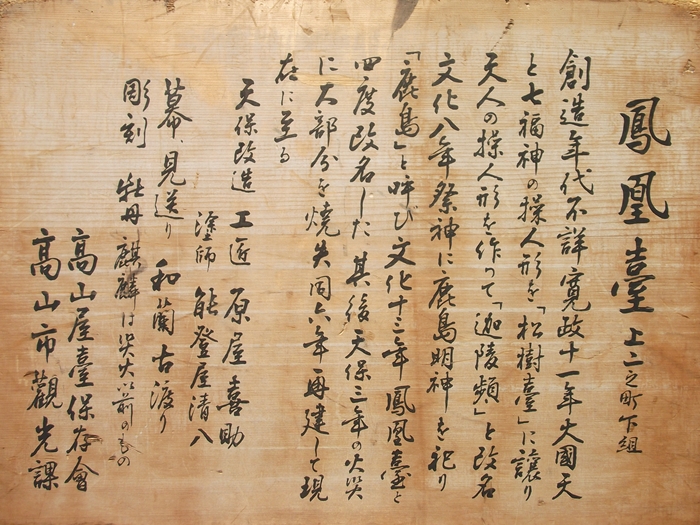 鳳凰臺 上二之町下組
創造年代不詳寛政十一年大國天
と七福神の操人形を「松樹臺」に譲り
天人の操人形を作って「迦陵頻」と改名
文化八年祭神に鹿島明神を祀り
「鹿島」と呼び文化十三年鳳凰臺と
四度改名した其後天保三年の火災
に大部分を焼失同六年再建して現
在に至る
天保改造 工匠 原屋喜助
塗師 能登屋清八
幕、見送り 和蘭古渡り
彫刻 牡丹、麒麟は災火以前のもの
高山屋臺保存會
高山市觀光課